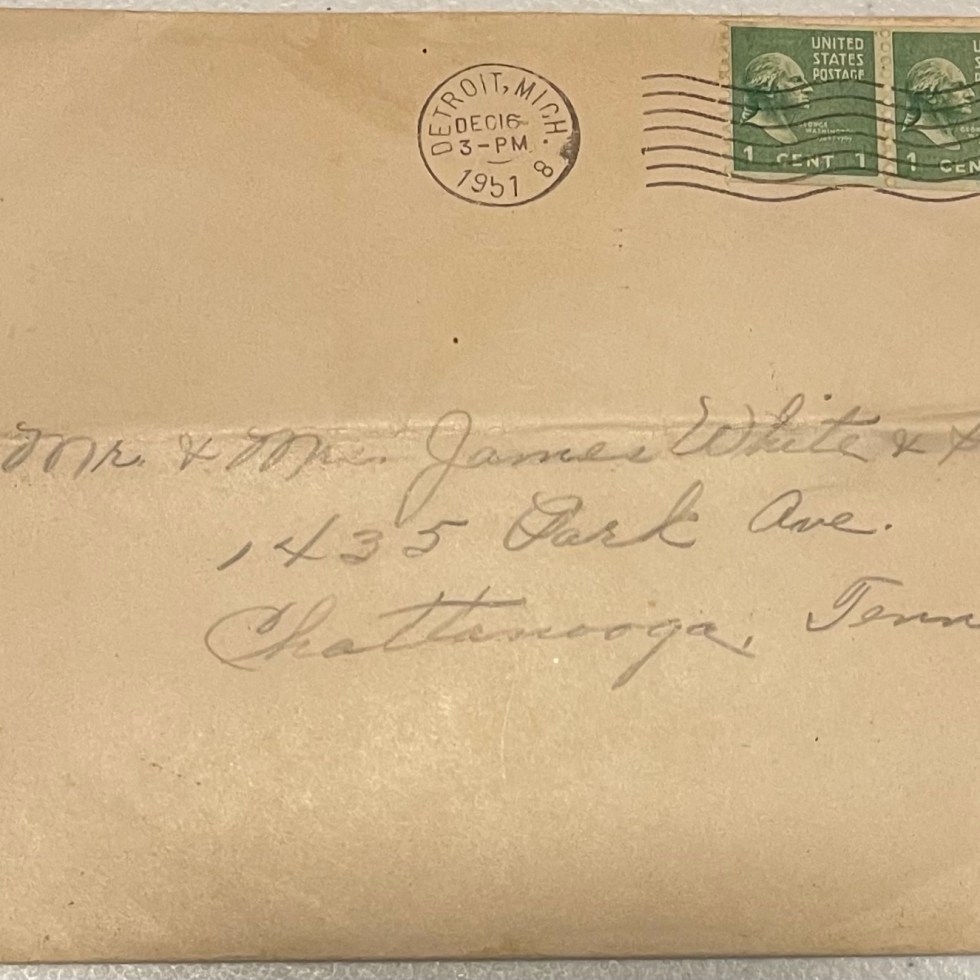 DETROIT, MICH.
DEC 16
3-PM
1951
8
UNITED
STATES
POSTAGE
1 CENT 1
1 CEN
Mr. & Mrs. James White &
1435 Park Ave.
Chattanooga, Tenn